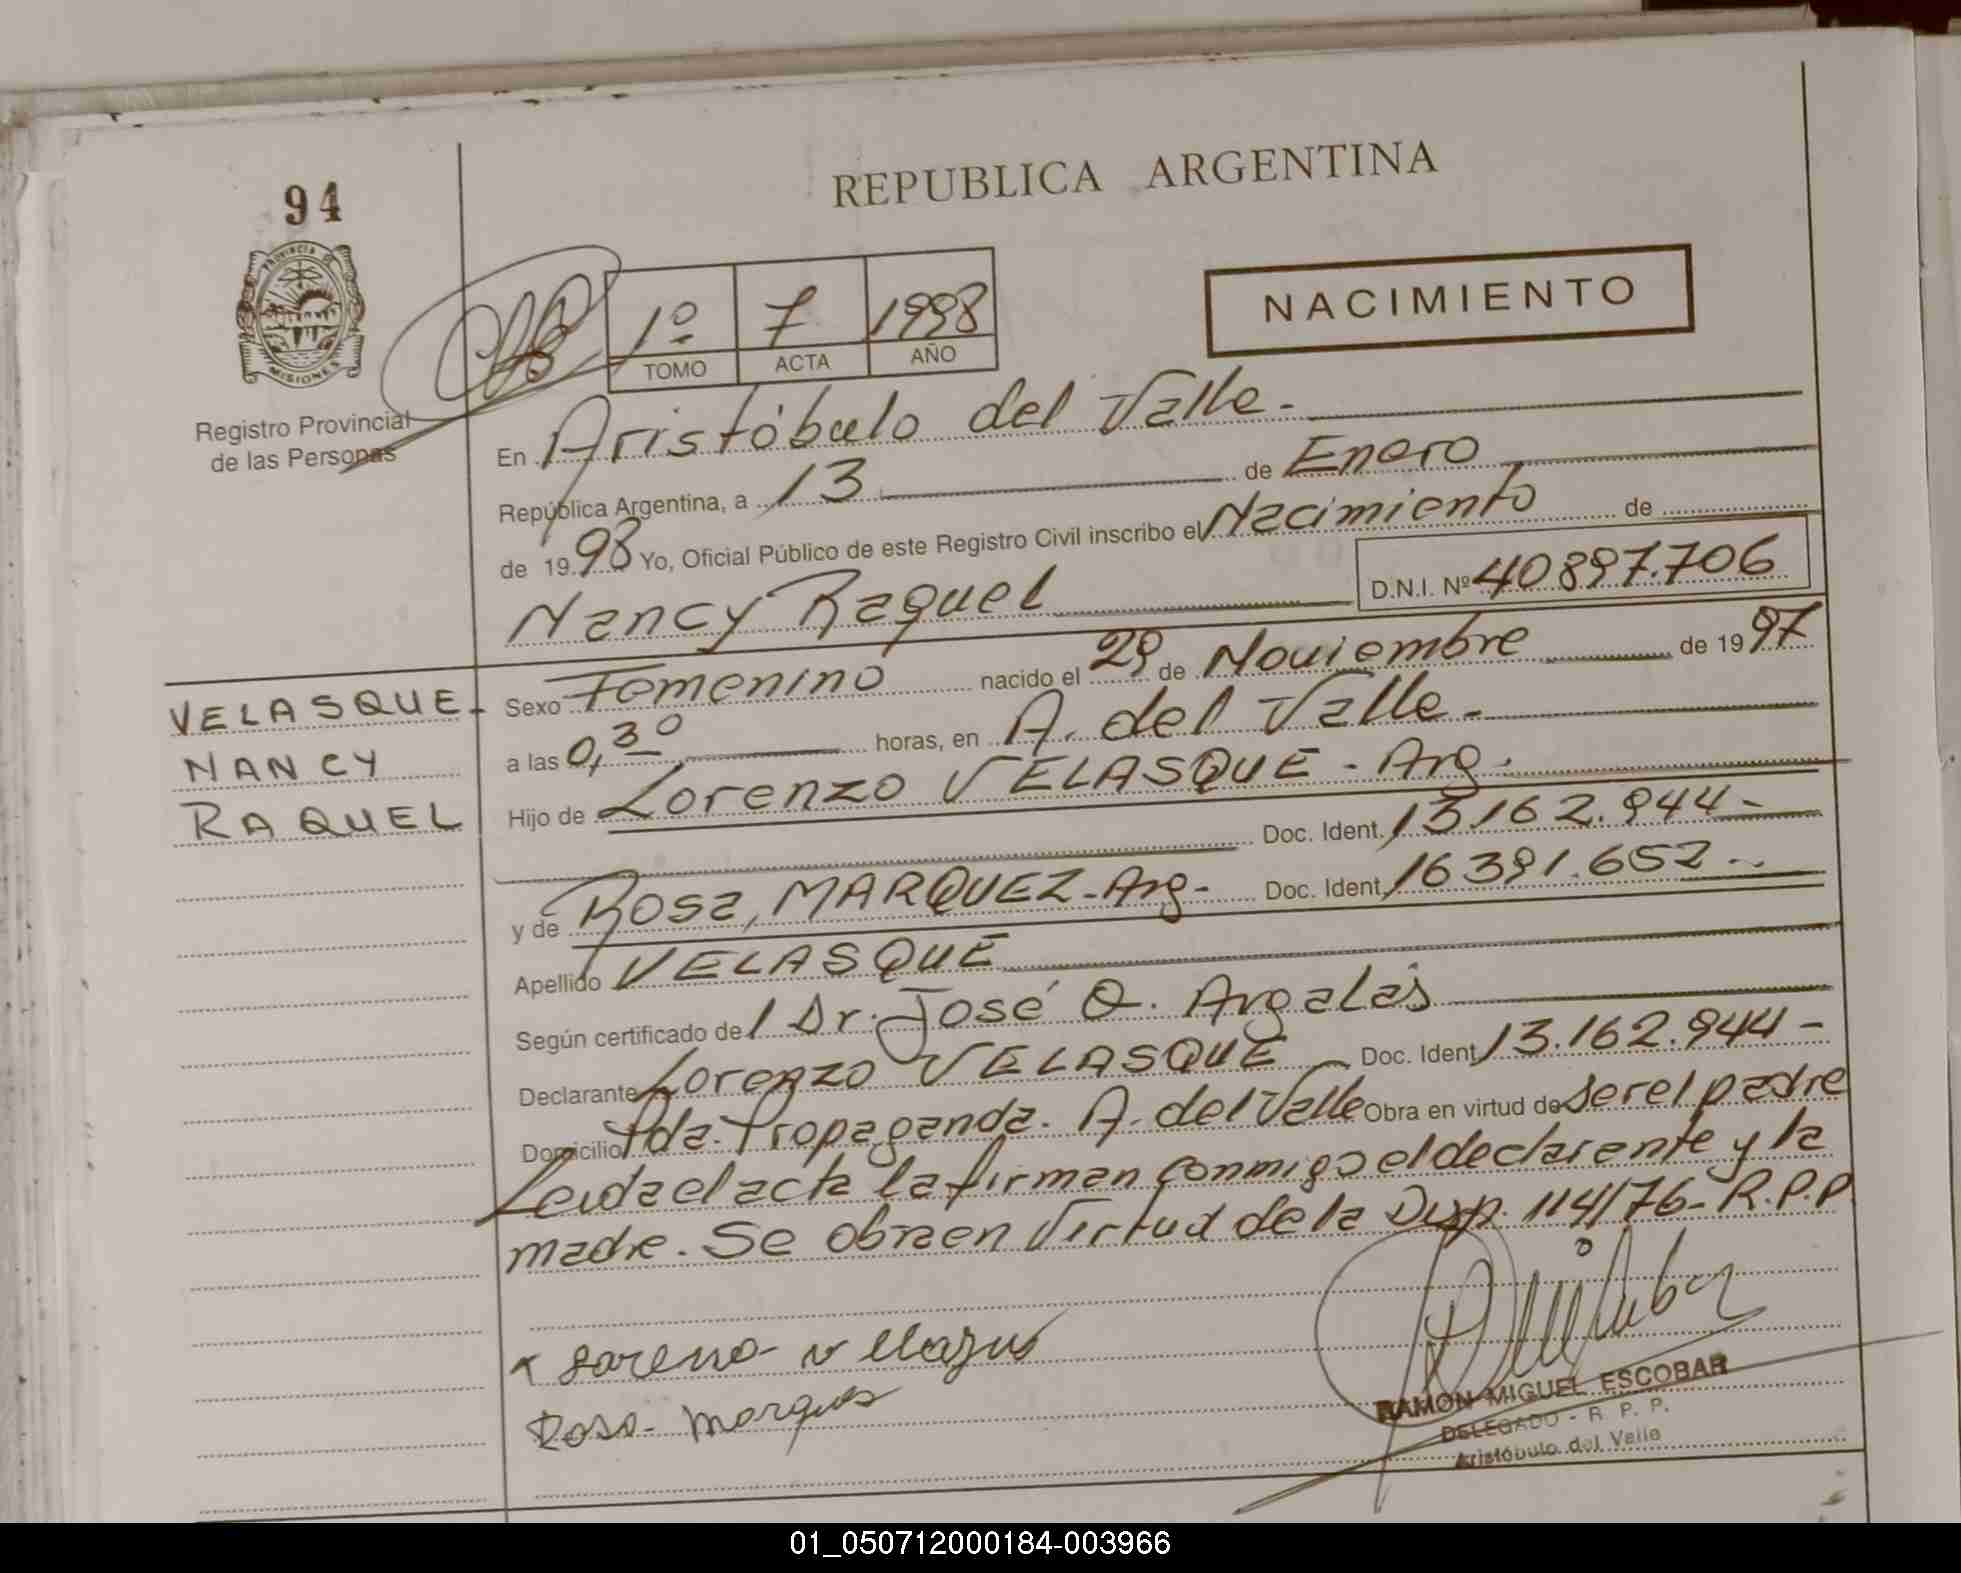 94
REPUBLICA ARGENTINA
PROVINCIA DE
MISIONES
Registro Provincial
de las Personas
1º 7 1998
TOMO ACTA AÑO
NACIMIENTO
En Aristóbulo del Valle.-
República Argentina, a 13 de Enero
de 1998 Yo, Oficial Público de este Registro Civil inscribo el Nacimiento de
Nancy Raquel D.N.I. Nº 40897.706
VELASQUE.
NANCY
RAQUEL
Sexo Femenino nacido el 29 de Noviembre de 1997
a las 0,30 horas, en A. del Valle.-
Hijo de Lorenzo VELASQUE - Arg.
Doc. Ident. 13.162.944-
y de Rosa, MARQUEZ-Arg- Doc. Ident. 16391.652-
Apellido VELASQUE
Según certificado del Dr. José O. Argalas
Declarante Lorenzo VELASQUE Doc. Ident. 13.162.944-
Domicilio Pda. Propaganda. A. del Valle Obra en virtud de ser el padre
Leida el acta la firman conmigo el declarante y la
madre. Se obra en Virtud de la Disp. 114/76-R.P.P
Rosa Marques
RAMON MIGUEL ESCOBAR
DELEGADO - R. P. P.
Aristóbulo del Valle
01_050712000184-003966